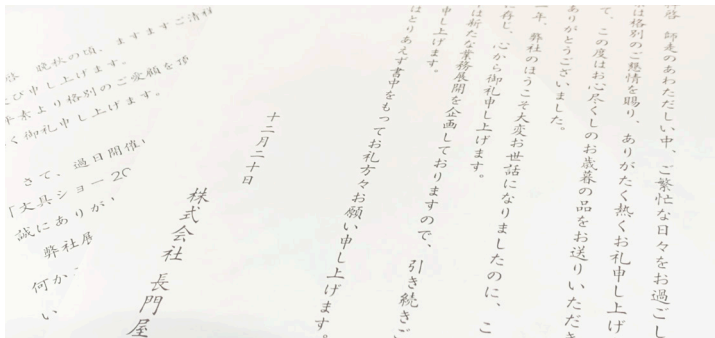 拝啓 師走のあわただしい中、ご繁忙な日々をお過ごし
は格別のご懇情を賜り、ありがたく熱くお礼申し上げ
て、この度はお心尽くしのお歳暮の品をお送りいただき
ありがとうございました。
年、弊社のほうこそ大変お世話になりましたのに、こ
に存じ、心から御礼申し上げます。
は新たな業務展開を企画しておりますので、引き続きご
申し上げます。
はとりあえず書中をもってお礼方々お願い申し上げます。
十二月二十日
株式会社 長門屋
啓 晩秋の頃、ますますご清祥
び申し上げます。
平素より格別のご愛顧を頂
く御礼申し上げます。
さて、過日開催
「文具ショー20
誠にありがい
弊社展
何か
い